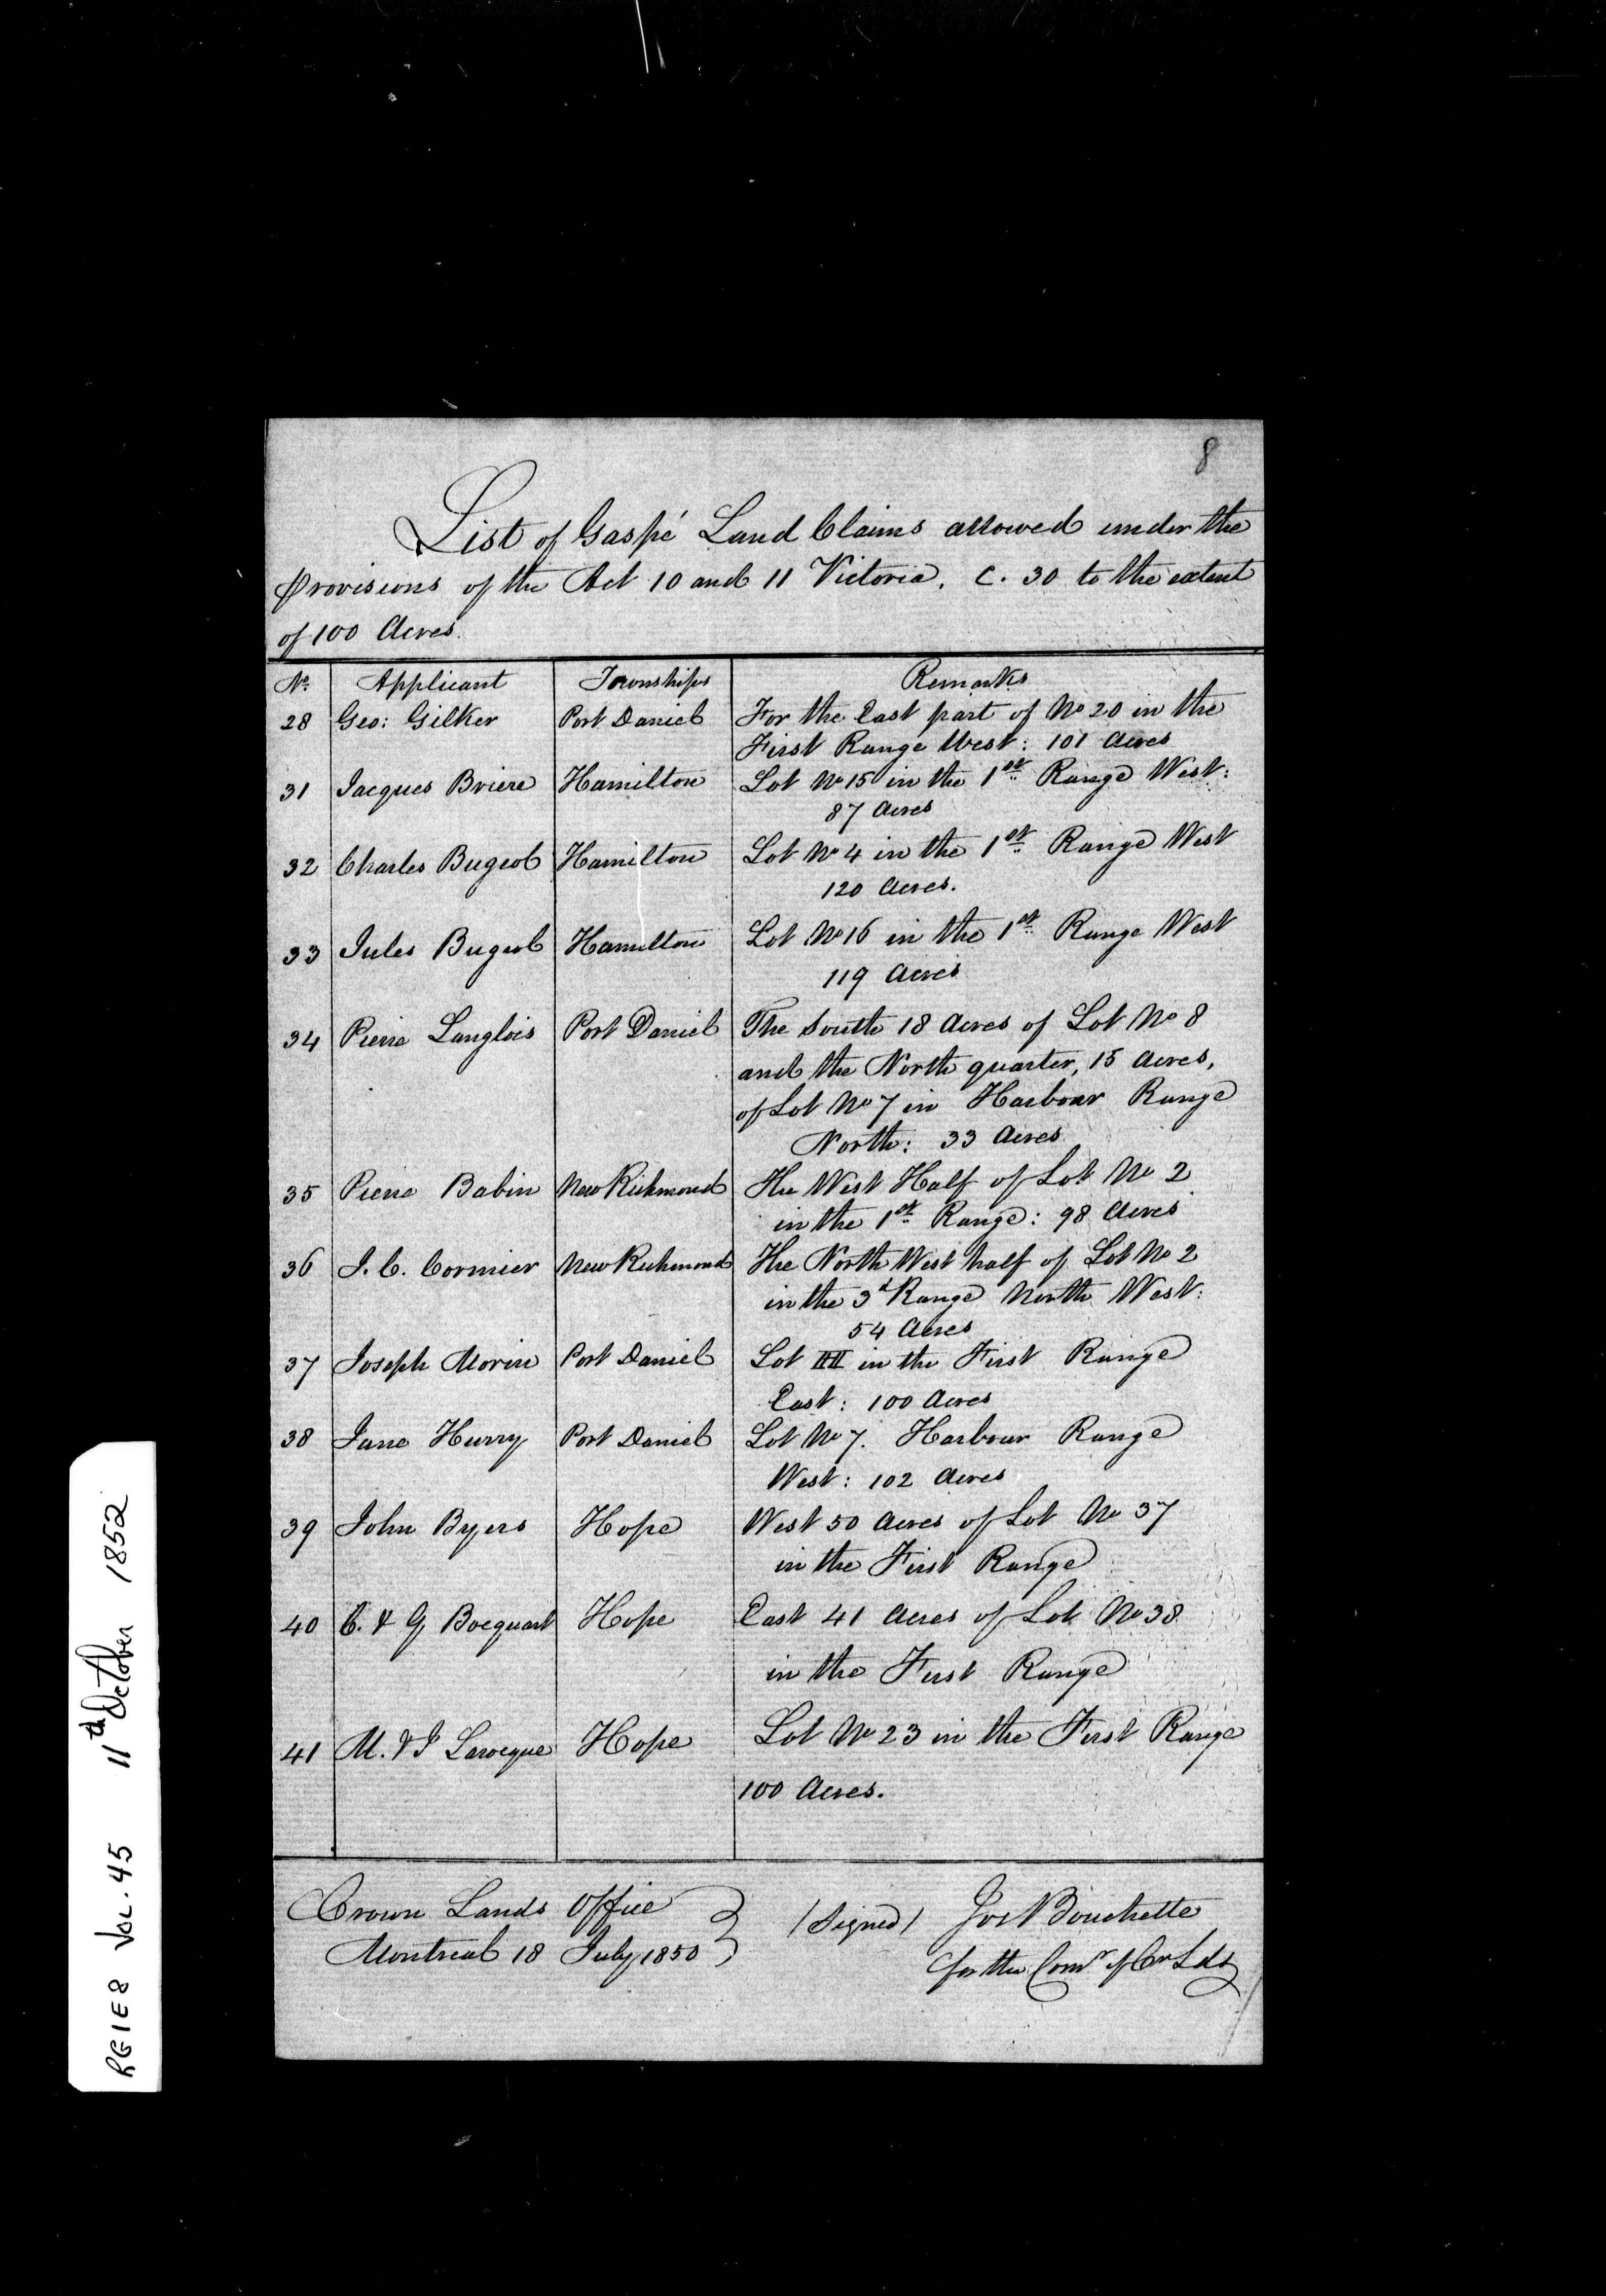 8
List of Gaspé Land Claims allowed under the
provisions of the Act 10 and 11 Victoria, C. 30 to the extent
of 100 Acres.
No. Applicant Townships Remarks
28 Geo: Gilker Port Daniel For the East part of No 20 in the
First Range West: 101 Acres
31 Jacques Briere Hamilton Lot No 15 in the 1st Range West:
87 Acres
32 Charles Bugeol Hamilton Lot No 4 in the 1st Range West
120 Acres.
33 Jules Bugeol Hamilton Lot No 16 in the 1st Range West
119 Acres
34 Pierre Langlois Port Daniel The South 18 Acres of Lot No 8
and the North quarter, 15 Acres,
of Lot No 7 in Harbour Range
North: 33 Acres
35 Pierre Babin New Richmond The West Half of Lot No 2
in the 1st Range: 98 Acres
36 J. C. Cormier New Richmond The North West half of Lot No 2
in the 3d Range North West:
54 Acres
37 Joseph Morin Port Daniel Lot in the First Range
East: 100 Acres
38 Jane Hurry Port Daniel Lot No 7. Harbour Range
West: 102 Acres
39 John Byers Hope West 50 Acres of Lot No 37
in the First Range
40 C. & G Bocquart Hope East 41 Acres of Lot No 38
in the First Range
41 M. & J Larocque Hope Lot No 23 in the First Range
100 Acres.
Crown Lands Office
Montreal 18 July 1850
(Signed) Jos Bouchette
for the Comr of Cr Lds
RG1E8 VOL. 45 11th October 1852